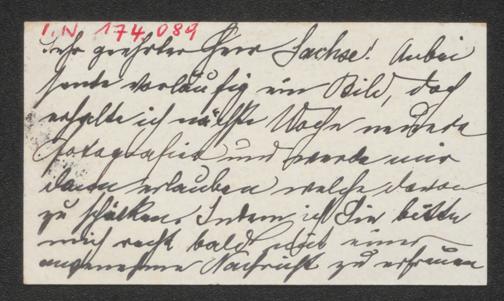 I.N. 174.089
Sehr geehrter Herr Sachse! Anbei
sende vorläufig ein Bild, doch
erhalte ich nächste Woche neuere
Fotografien und werde mir
dann erlauben welche davon
zu schicken. Indem ich Sie bitte
mich recht bald mit einer
angenehmen Nachricht zu erfreuen